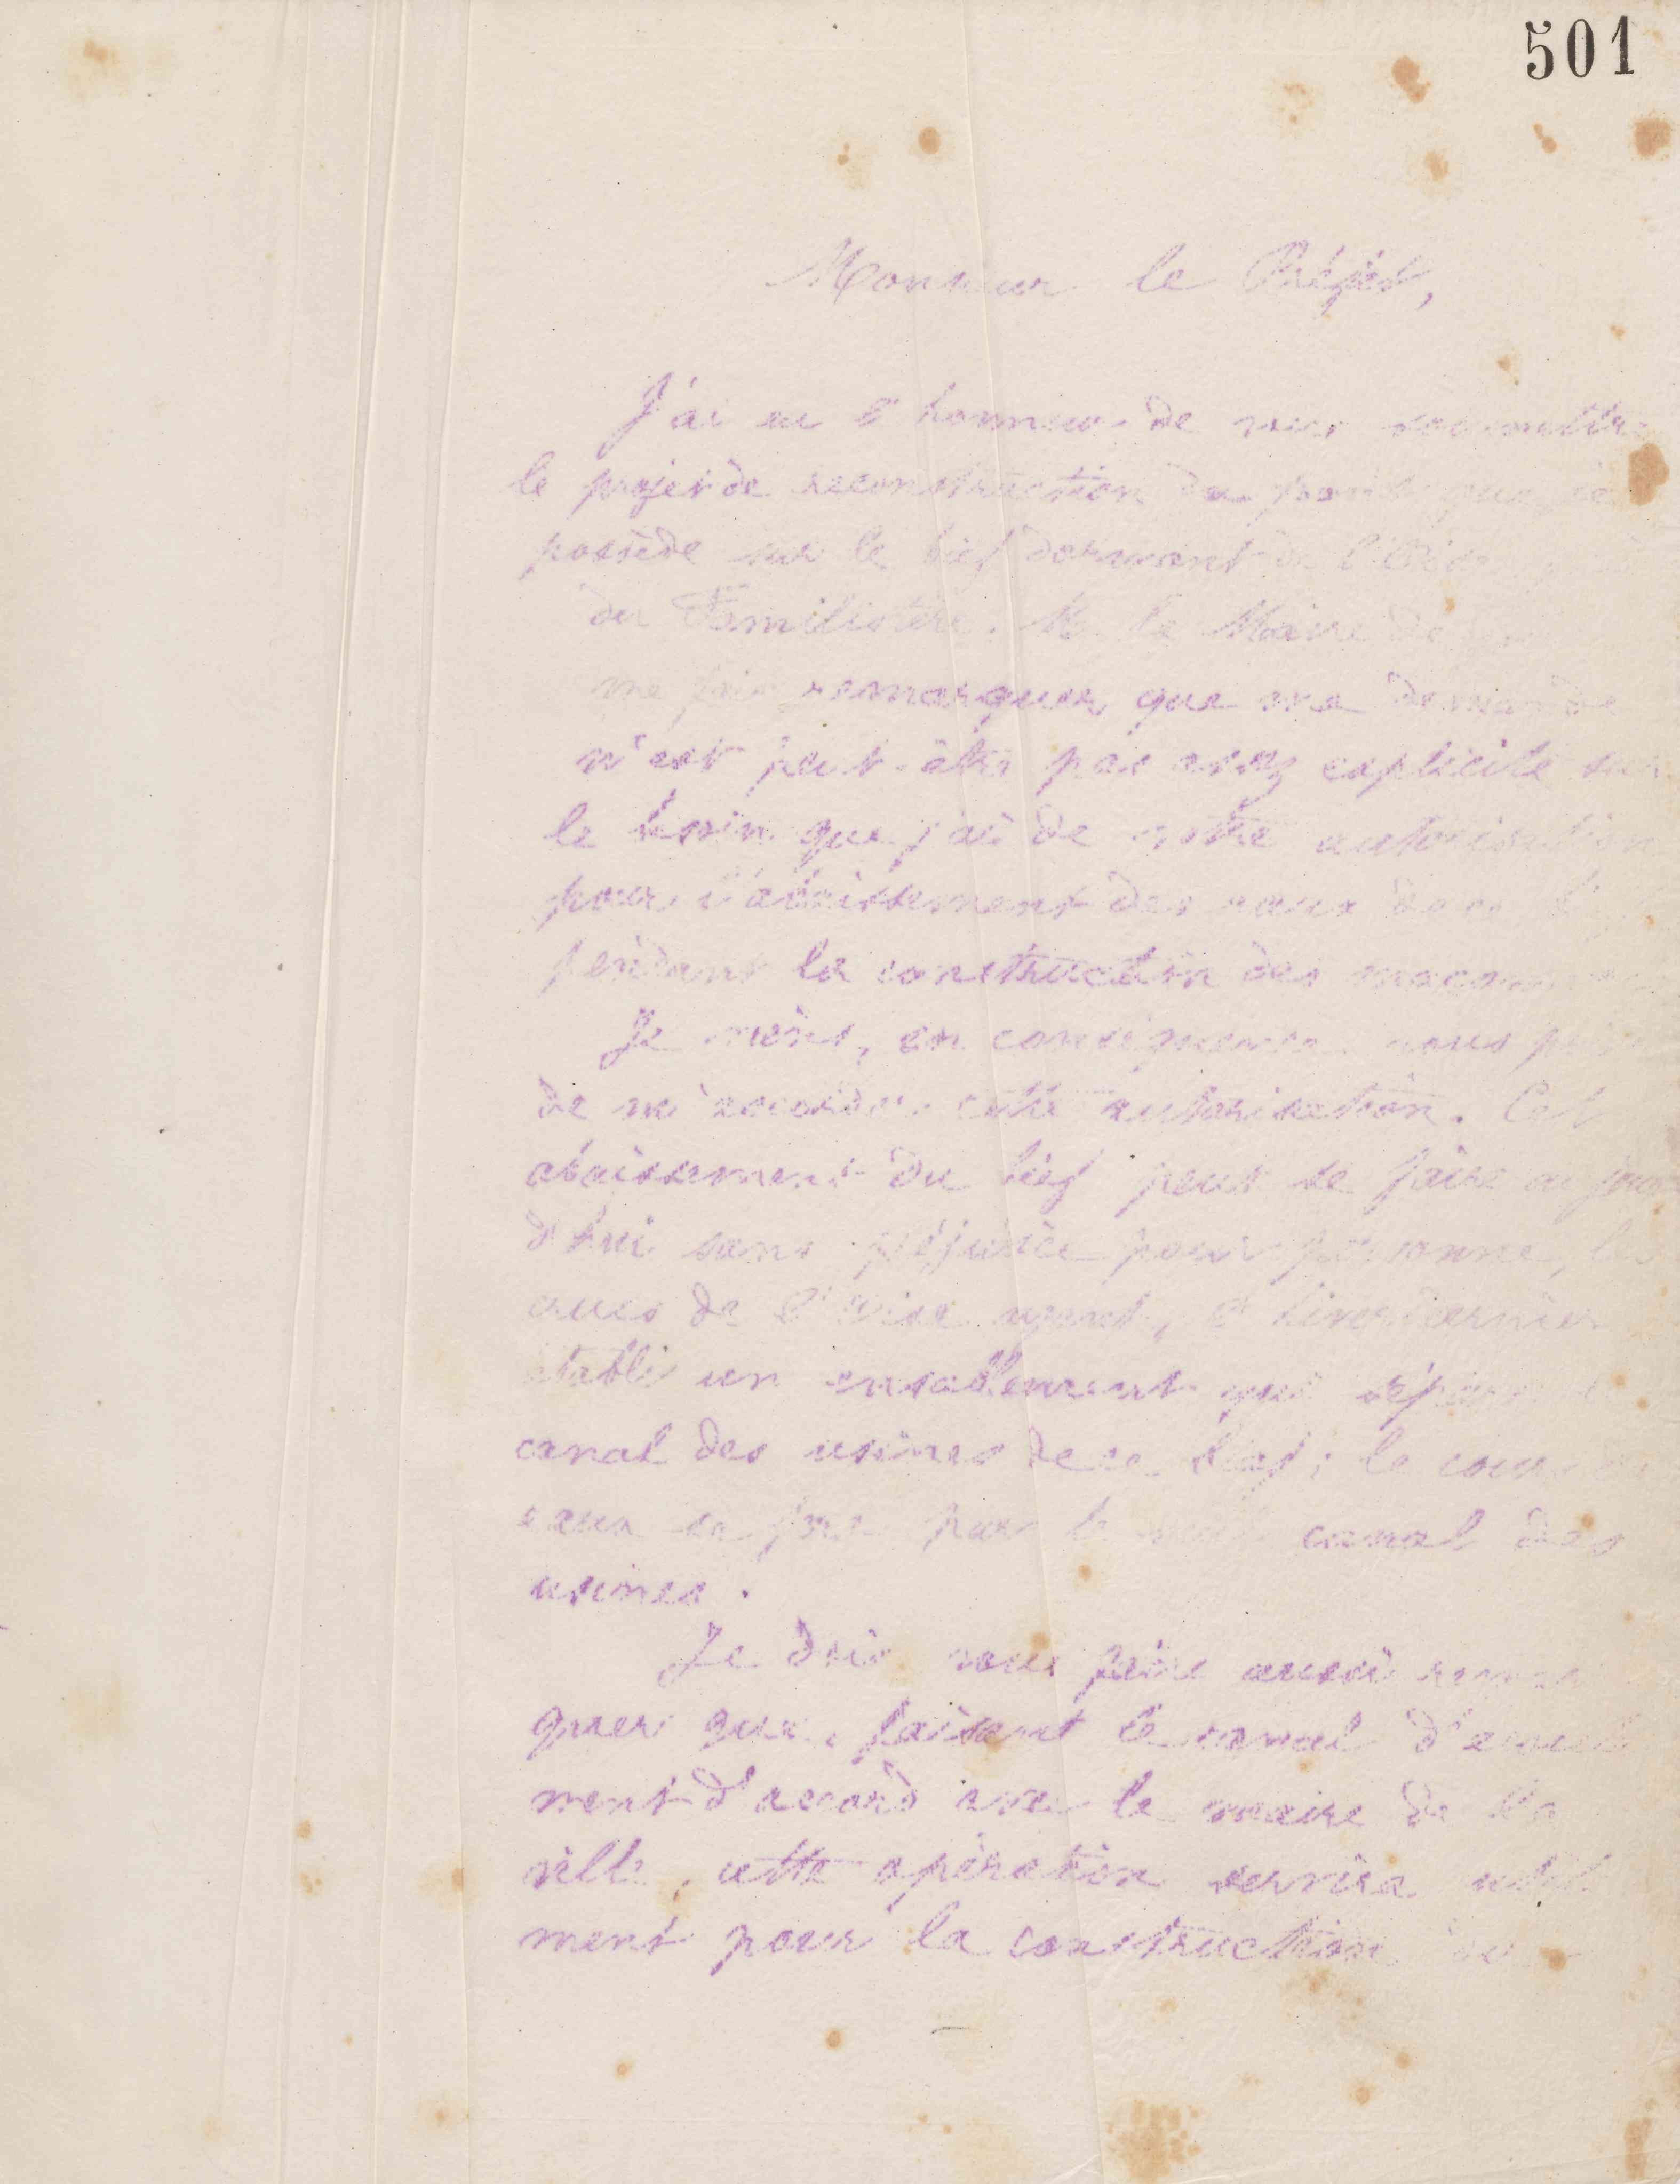 501
Monsieur le Préfet,
J'ai eu l'honneur de vous soumettre
le projet de reconstruction du pont que je
possède sur le bief dormant de l'Oise
du Familistère. M. le Maire de
me fait remarquer que ma demande
n'est peut-être pas assez explicite sur
le besoin que j'ai de votre autorisation
pour l'abaissement des eaux dans
pendant la construction des
Je viens, en conséquence vous
de m'accorder cette autorisation. Cet
abaissement du bief peut se faire au jour
d'hui sans préjudice pour personne, les
crues de l'Oise ayant, l'hiver dernier
établi un ensablement qui sépare
canal des usines de ce bief; le cours
eaux se fait par le seul canal des
usines.
Je dois vous faire aussi remar
quer que, faisant le canal
ment d'accord avec le maire de la
ville, cette opération servira utile
ment pour la construction